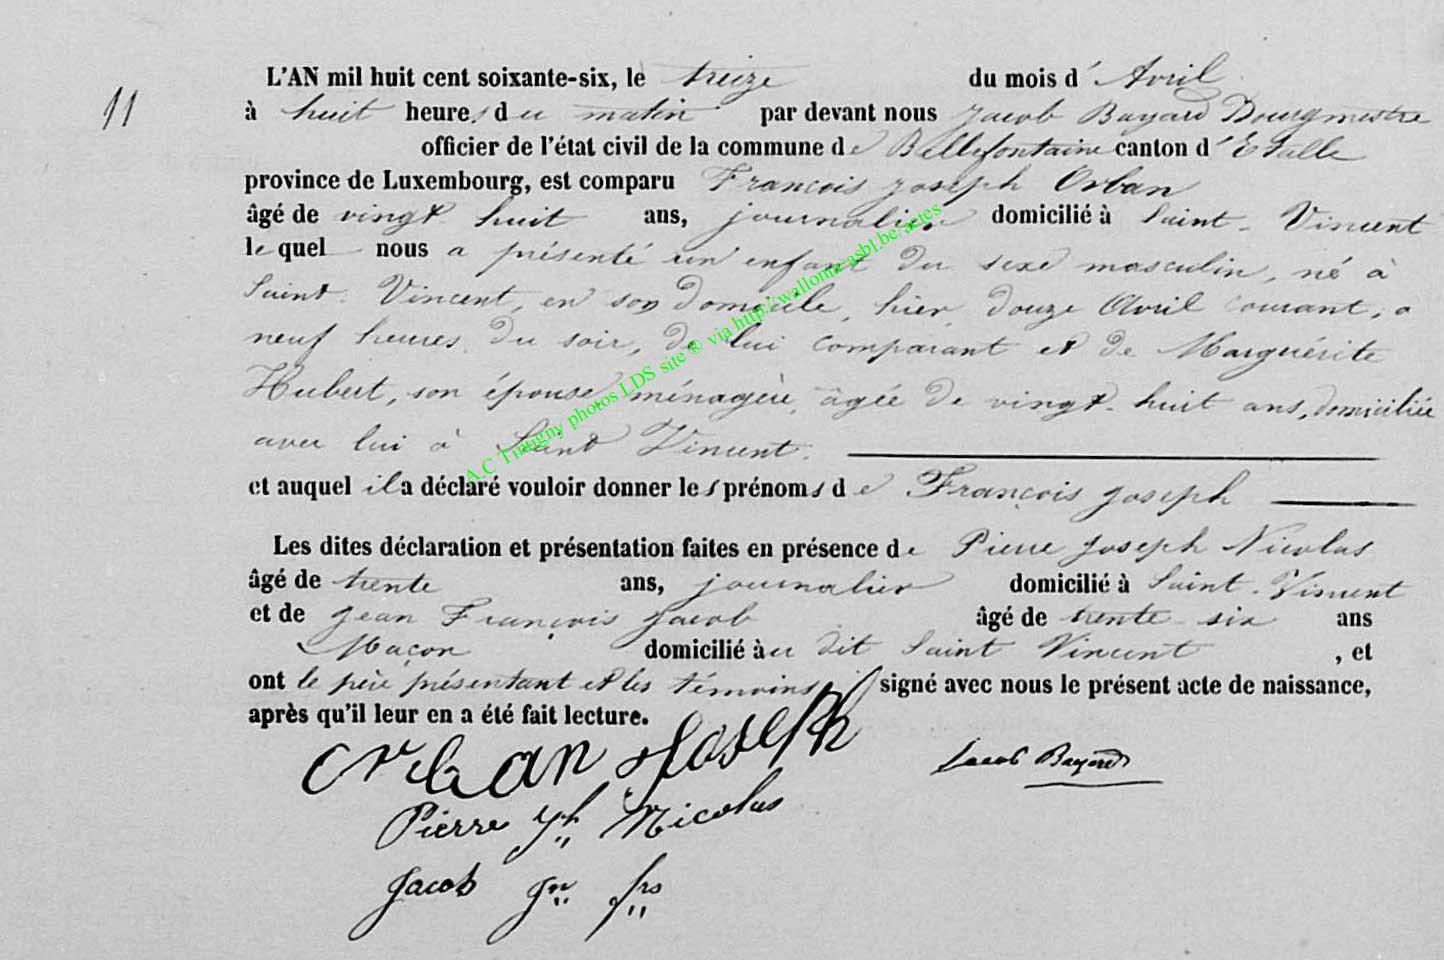 11
L'AN mil huit cent soixante-six, le treize du mois d'Avril
à huit heures du matin par devant nous Jacob Bayard Bourgmestre
officier de l'état civil de la commune de Bellefontaine canton d'Etalle
province de Luxembourg, est comparu François Joseph Orban
âgé de vingt huit ans, journalier domicilié à Saint-Vincent
lequel nous a présenté un enfant du sexe masculin, né à
Saint-Vincent, en son domicile, hier, douze Avril courant, a
neuf heures du soir, de lui comparant et de Marguérite
Hubert, son épouse ménagère, âgée de vingt-huit ans, domiciliée
avec lui à Saint Vincent.
et auquel il a déclaré vouloir donner les prénoms de François Joseph
Les dites déclaration et présentation faites en présence de Pierre Joseph Nicolas
âgé de trente ans, journalier domicilié à Saint-Vincent
et de Jean François Jacob âgé de trente-six ans
Maçon domicilié au dit Saint Vincent, et
ont le père présentant et les témoins signé avec nous le présent acte de naissance,
après qu'il leur en a été fait lecture.
Orban Joseph
Jacob Bayard
Pierre Jh Nicolas
Jacob Jn frs
A.C Tintigny photos LDS site ® via http://wallonia-asbl.be/actes